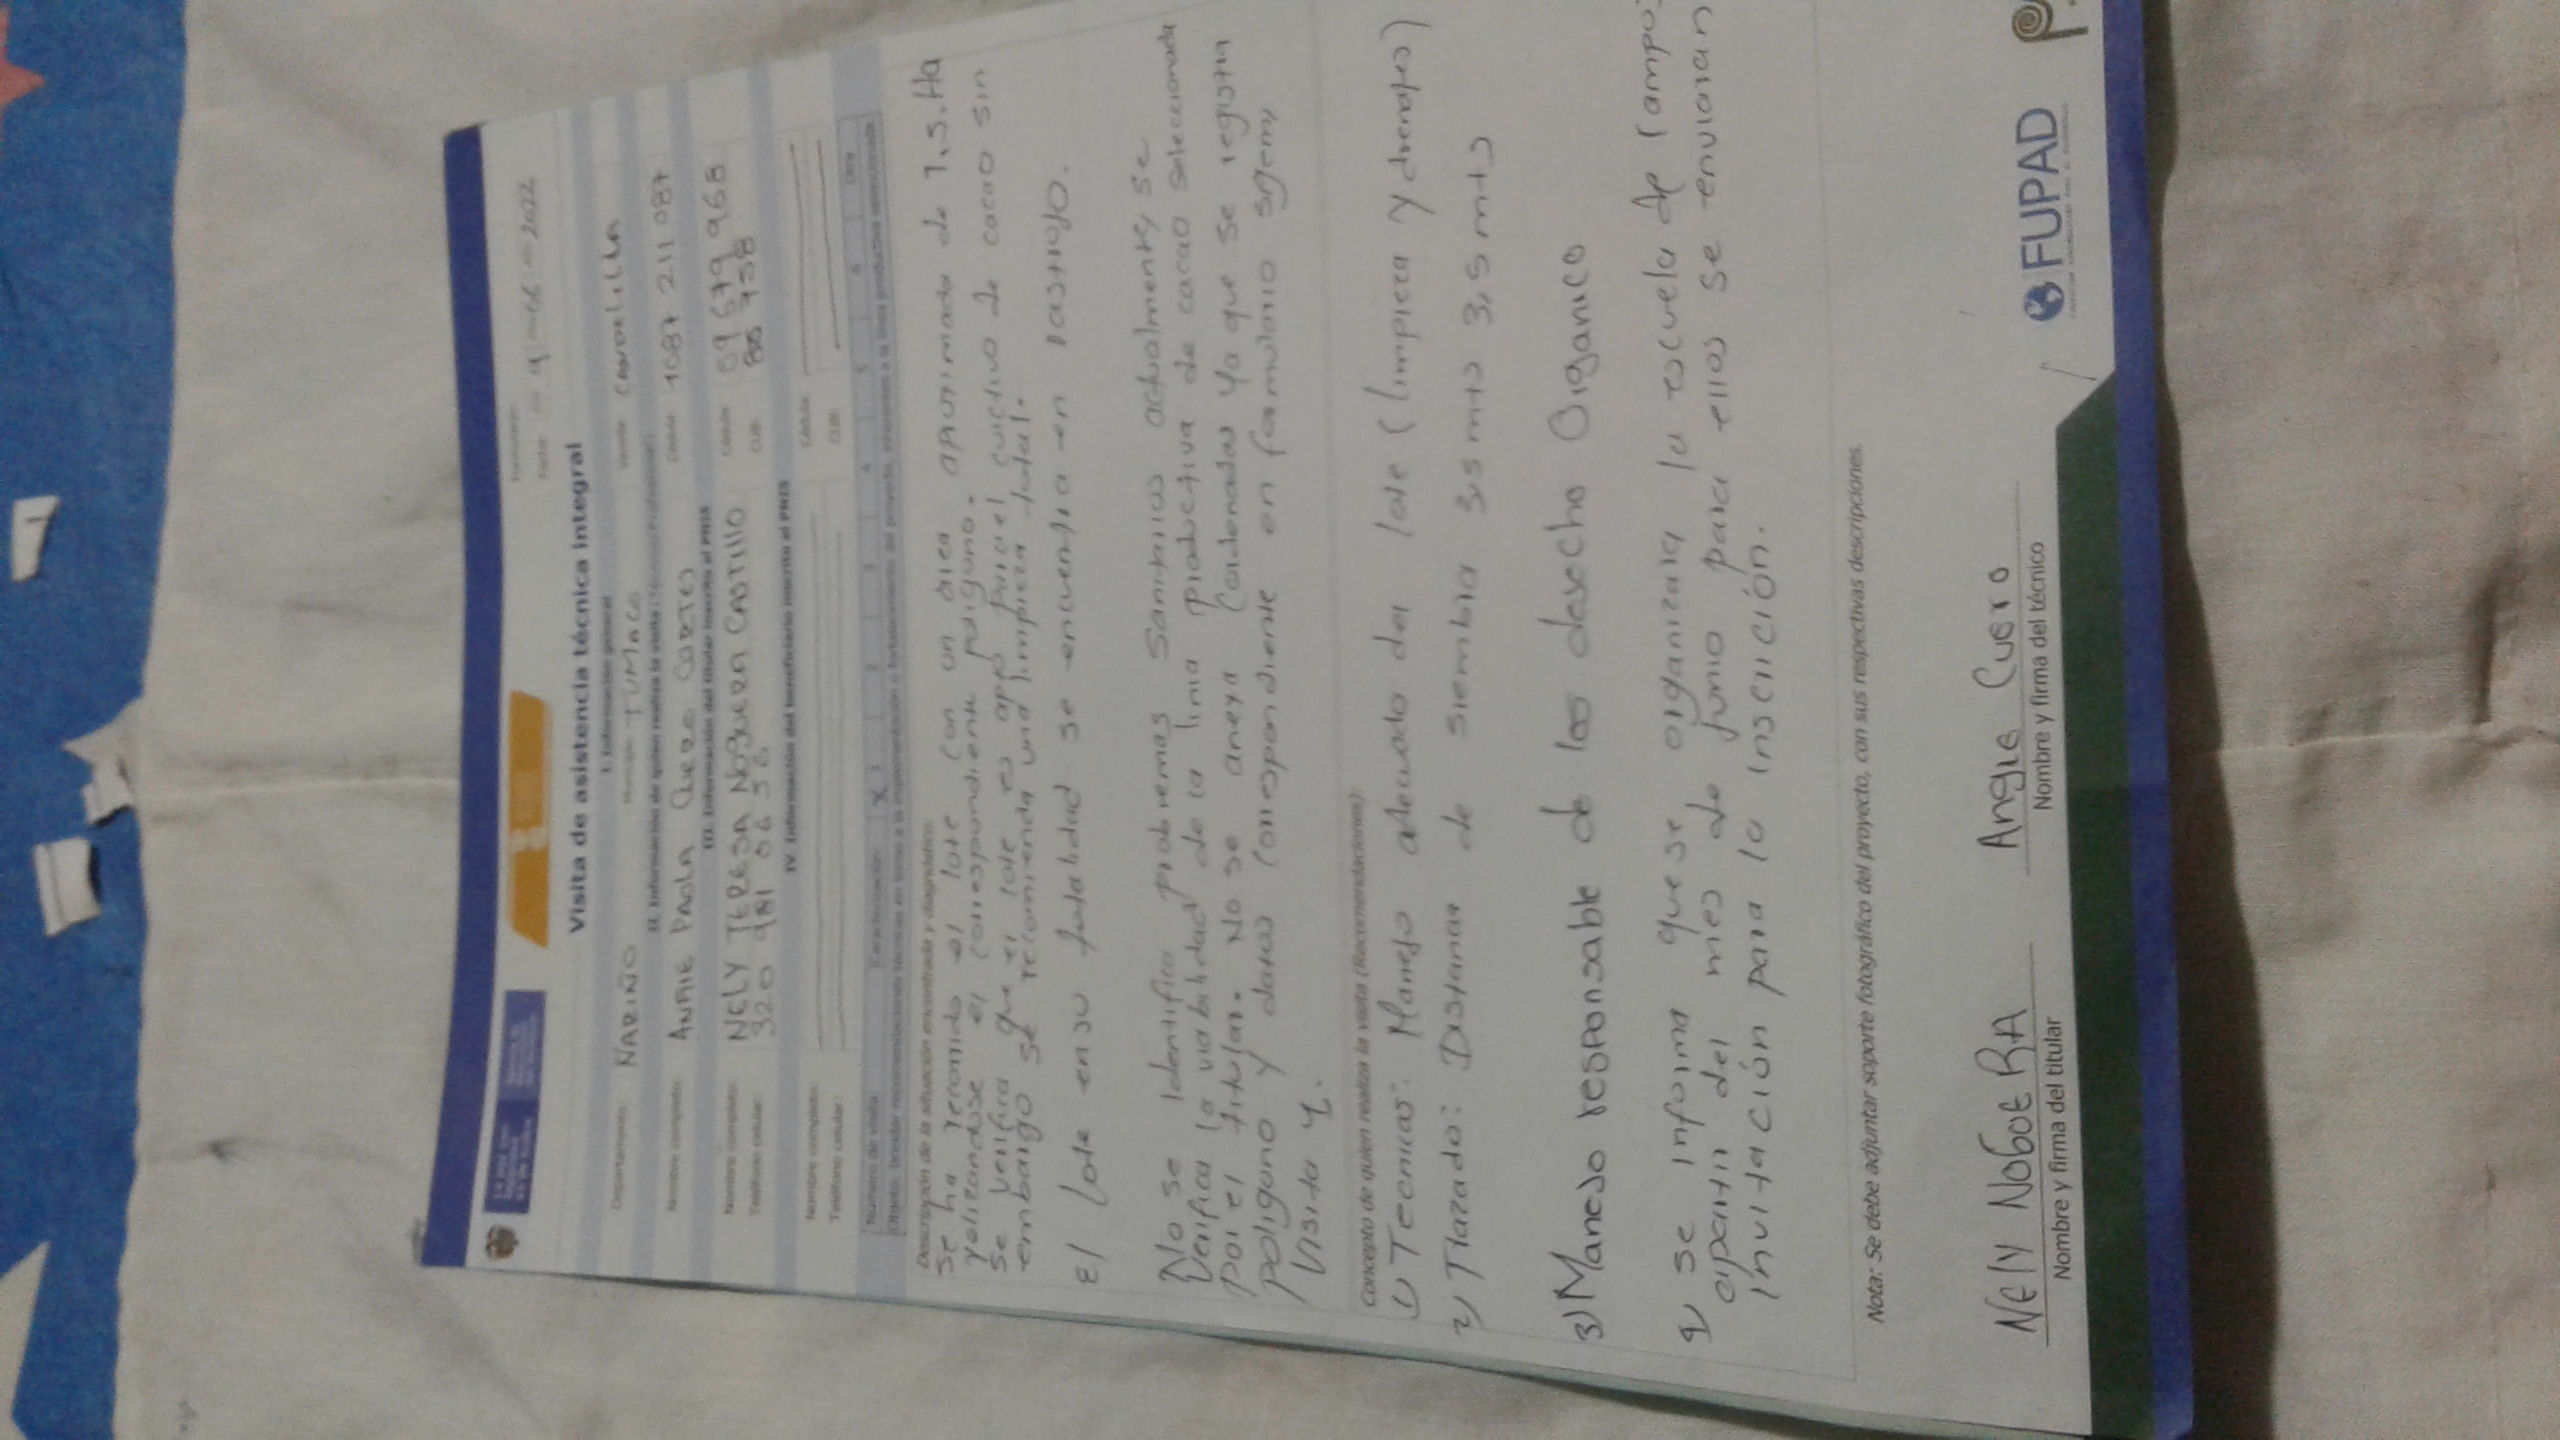 Fecha: 9-06-2022
Visita de asistencia técnica integral
I. Información general
Departamento: NARIÑO Municipio: TUMACO Vereda: CANDELILLA
II. Información de quien realiza la visita
Nombre completo: ANGIE PAOLA CUERO CORTES Cédula: 1087 211 087
III. Información del titular inscrito al PNIS
Nombre completo: NELY TERESA NOGUERA CASTILLO Cédula: 59 679 968
Teléfono celular: CUB:
IV. Información del beneficiario inscrito al PNIS
Nombre completo: Cédula:
Teléfono celular: CUB:
Número de visita Caracterización X 1 2 3 4 5 6 Otra
Descripción de la situación encontrada y diagnóstico:
Se ha recorrido el lote con un área aproximado de 1.5.Ha
realizandose el correspondiente poligono.
Se verifica que el lote es apto para el cultivo de cacao sin
embargo se recomienda una limpieza total.
El lote en su totalidad se encuentra en rastrojo.
No se identifica problemas sanitarios actualmente, se
Verifica la viabilidad de la linia productiva de cacao seleccionada
por el titular. No se anexa Cordenadas ya que se registra
poligono y datos correspondiente en formulario sygeny
Visita 1.
Concepto de quien realiza la visita (Recomendaciones):
1) Tecnicas: Manejo adecuado del lote (limpieza y drenajes)
2) Trazado: Distancia de siembra 3,5 mts 3,5 mts
3) Manejo responsable de los desecho Organico
4) se informa que se organizara la escuela de campo:
apartir del mes de Junio para ellos se enviaran
invitación para la inscrición.
Nota: Se debe adjuntar soporte fotográfico del proyecto, con sus respectivas descripciones.
NELY NOGUERA Angie Cuero
Nombre y firma del titular Nombre y firma del técnico
FUPAD